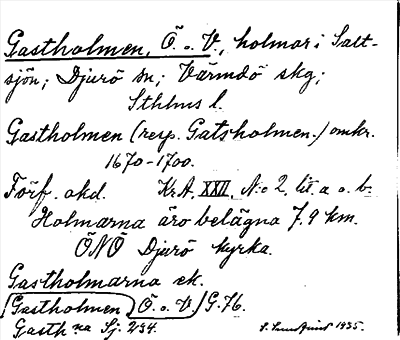 Gastholmen, Ö. o. V., holmar i Salt-
sjön; Djurö sn; Värmdö skg;
Sthlms l.
Gastholmen (resp. Gatsholmen.) omkr.
1670-1700.
Förf. okd. Kr.A. XXII, N:o 2, lit. a o. b.
Holmarna äro belägna 7.9 km.
ÖNÖ Djurö kyrka.
Gastholmarna ek.
(Gastholmen) Ö. o. V.) G. 76.
Gasth:na Sj. 234. S. Sundqvist 1935.